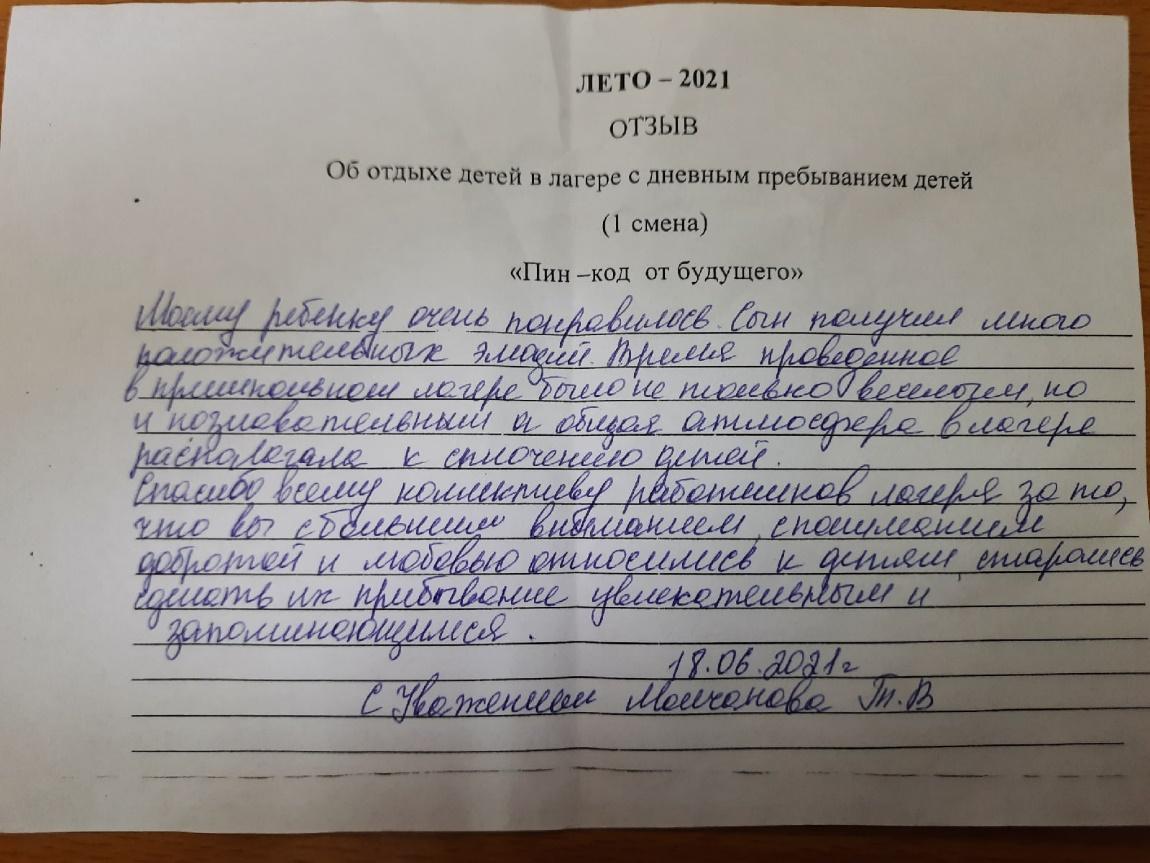 ЛЕТО – 2021
ОТЗЫВ
Об отдыхе детей в лагере с дневным пребыванием детей
(1 смена)
«Пин –код от будущего»
Моему ребенку очень понравилось. Сын получил много
положительных эмоций. Время проведенное
в пришкольном лагере было не только веселым, но
и познавательным а общая атмосфера в лагере
располагала к сплочению детей.
Спасибо всему коллективу работников лагеря за то,
что вы с большим вниманием, с пониманием
добротой и любовью относились к детям, старались
сделать их прибывание увлекательным и
запоминающимся.
18.06.2021г
С Уважением Молчанова Т.В